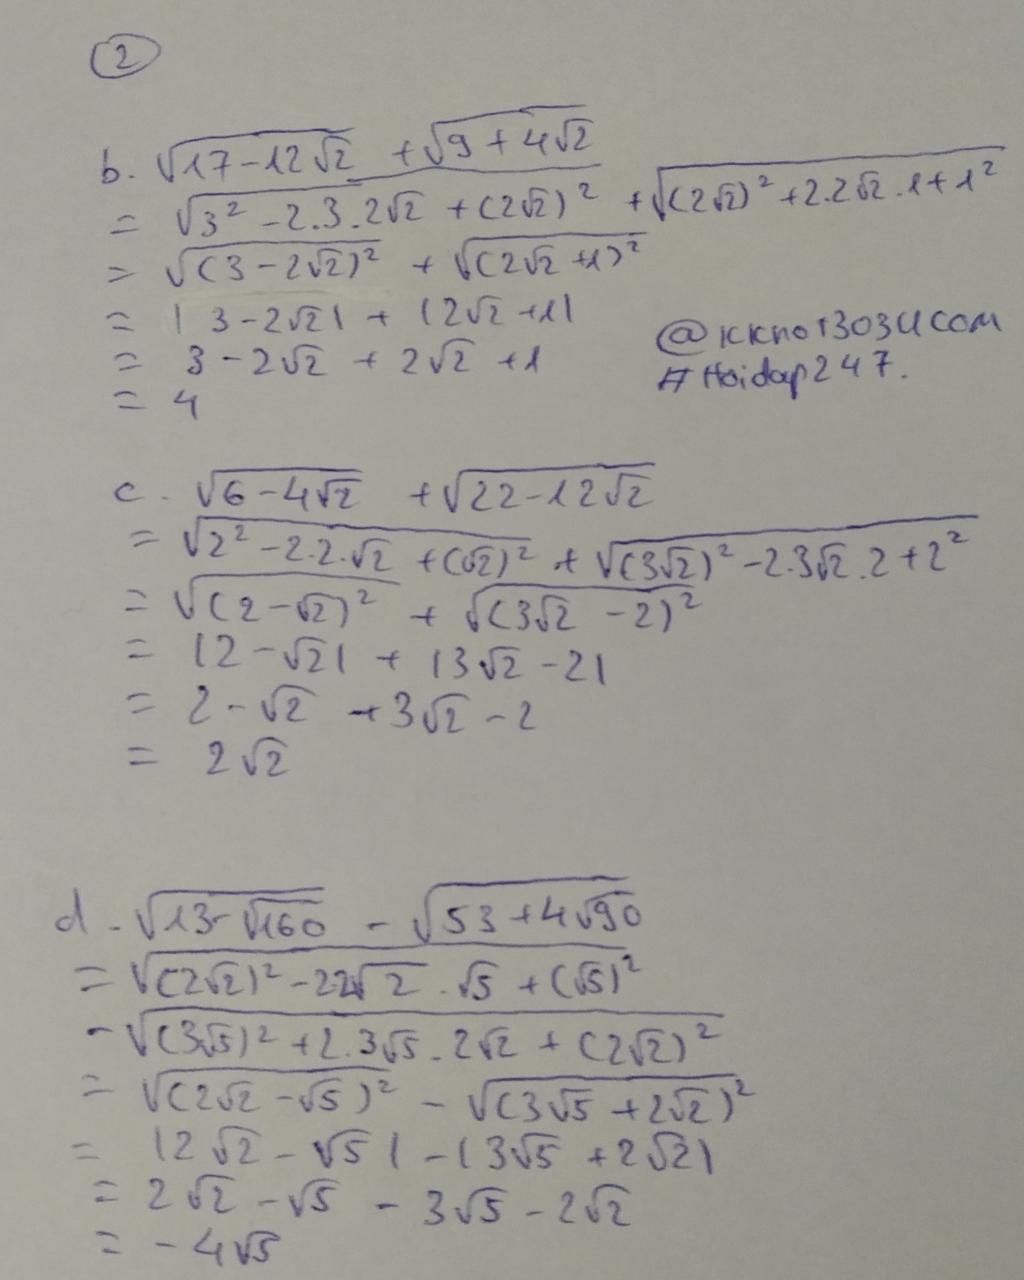 2
b. √(17-12√2) + √(9+4√2)
= √(3² - 2.3.2√2 + (2√2)²) + √((2√2)² + 2.2√2.1 + 1²)
= √((3-2√2)²) + √((2√2+1)²)
= |3-2√2| + |2√2+1|
= 3-2√2 + 2√2 + 1
= 4
@kkno13034com
#Hoidap247.
c. √(6-4√2) + √(22-12√2)
= √(2² - 2.2.√2 + (√2)²) + √((3√2)² - 2.3√2.2 + 2²)
= √((2-√2)²) + √((3√2-2)²)
= |2-√2| + |3√2-2|
= 2-√2 + 3√2 - 2
= 2√2
d. √(13-√160) - √(53+4√90)
= √((2√2)² - 2.2√2.√5 + (√5)²)
- √((3√5)² + 2.3√5.2√2 + (2√2)²)
= √((2√2-√5)²) - √((3√5+2√2)²)
= |2√2-√5| - |3√5+2√2|
= 2√2-√5 - 3√5-2√2
= -4√5